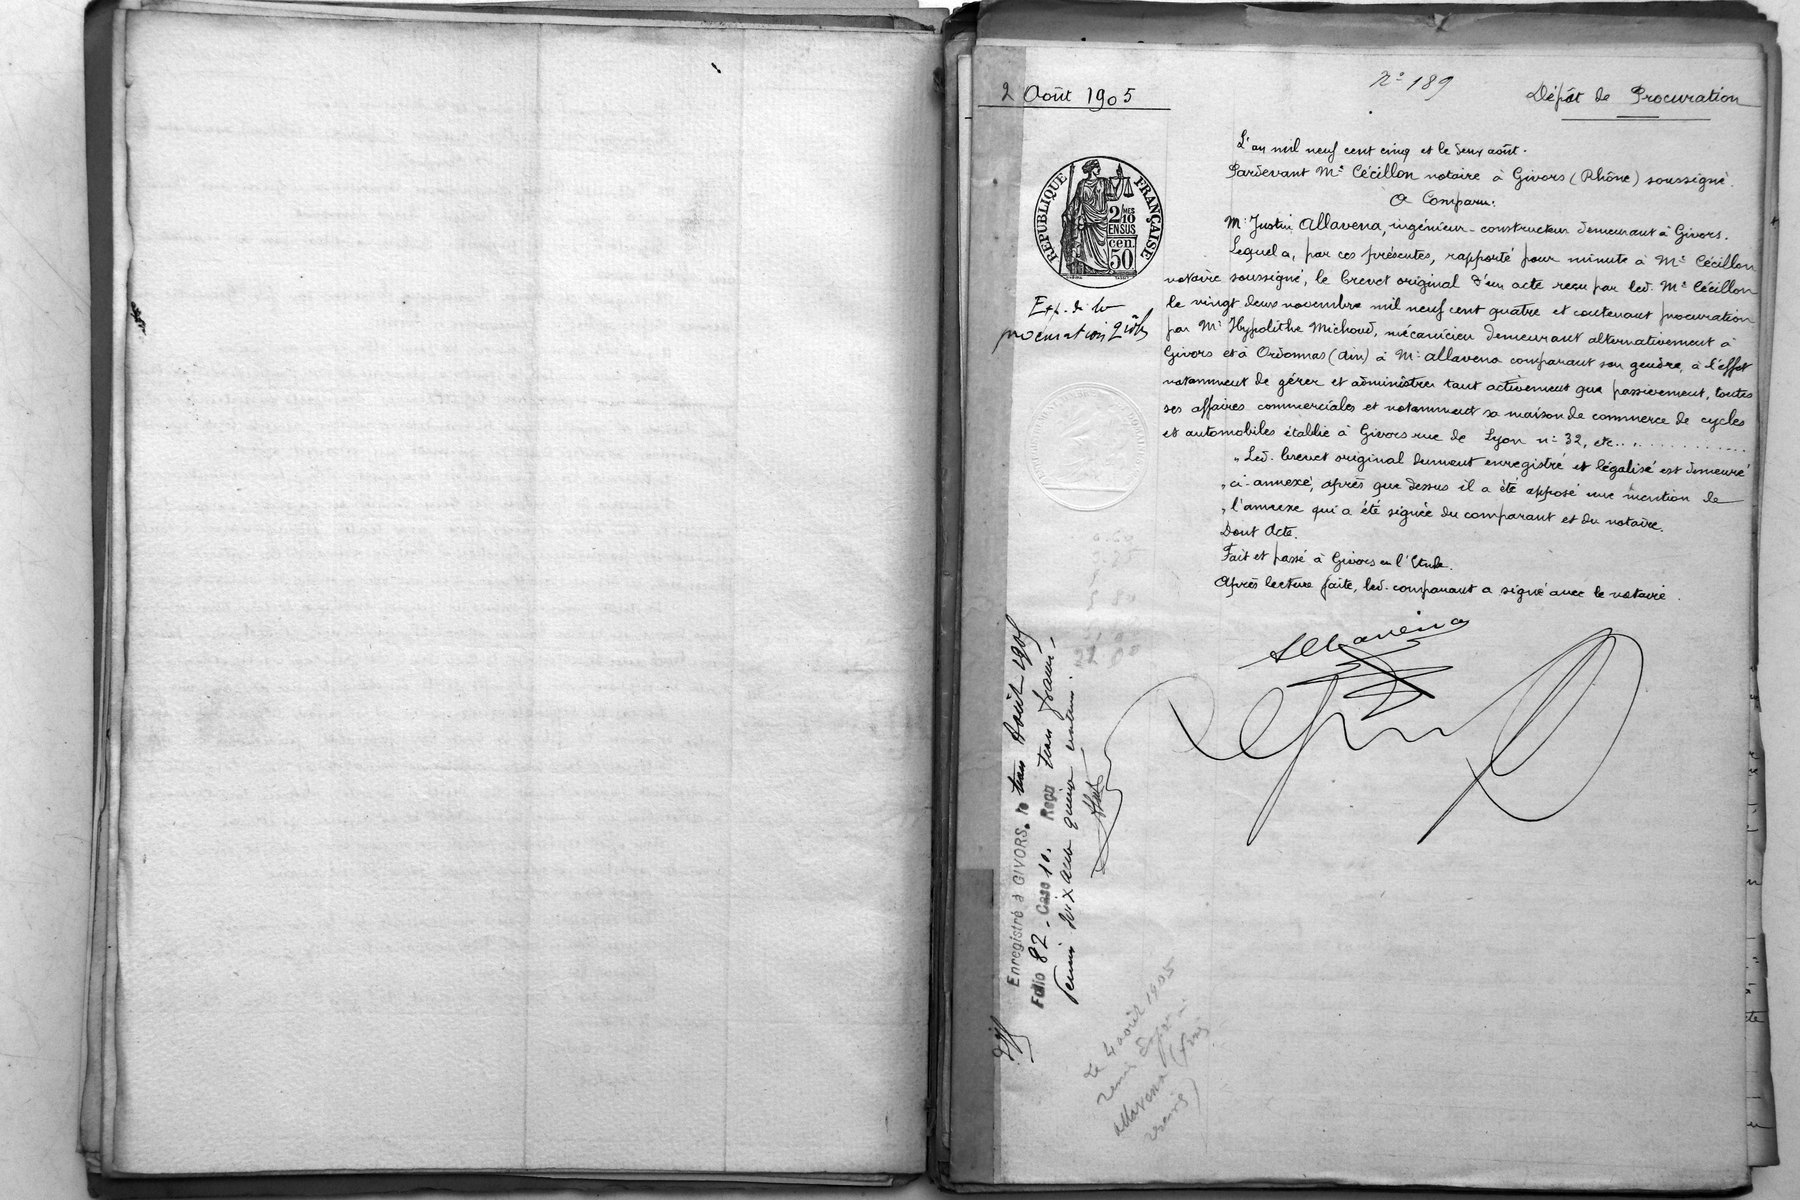 2 Août 1905
N° 189
Dépôt de Procuration
L'an mil neuf cent cinq et le deux août.
Pardevant Me Cécillon notaire à Givors (Rhône) soussigné.
A Comparu:
Mr Justin Allavena, ingénieur-constructeur demeurant à Givors.
Lequel a, par ces présentes, rapporté pour minute à Me Cécillon
notaire soussigné, le brevet original d'un acte reçu par led. Me Cécillon
le vingt deux novembre mil neuf cent quatre et contenant procuration
par Mr Hypolithe Michoud, mécanicien demeurant alternativement à
Givors et à Ordonnas (Ain) à Mr Allavena comparant son gendre, à l'effet
notamment de gérer et administrer tant activement que passivement, toutes
ses affaires commerciales et notamment sa maison de commerce de cycles
et automobiles établie à Givors rue de Lyon n° 32, etc..............
" Led. brevet original dument enregistré et légalisé est demeuré
" ci-annexé, après que dessus il a été apposé une mention de
" l'annexe qui a été signée du comparant et du notaire.
Dont Acte.
Fait et passé à Givors en l'Etude.
Après lecture faite, led. comparant a signé avec le notaire.
Allavena
REPUBLIQUE FRANÇAISE
2/10 MES
EN SUS
50 cen.
Exp. de la
procuration
Enregistré à GIVORS, le trois Août 1905
Folio 82, Case 10. Reçu trois francs,
Le 4 août 1905
remis Exp. à
Allavena